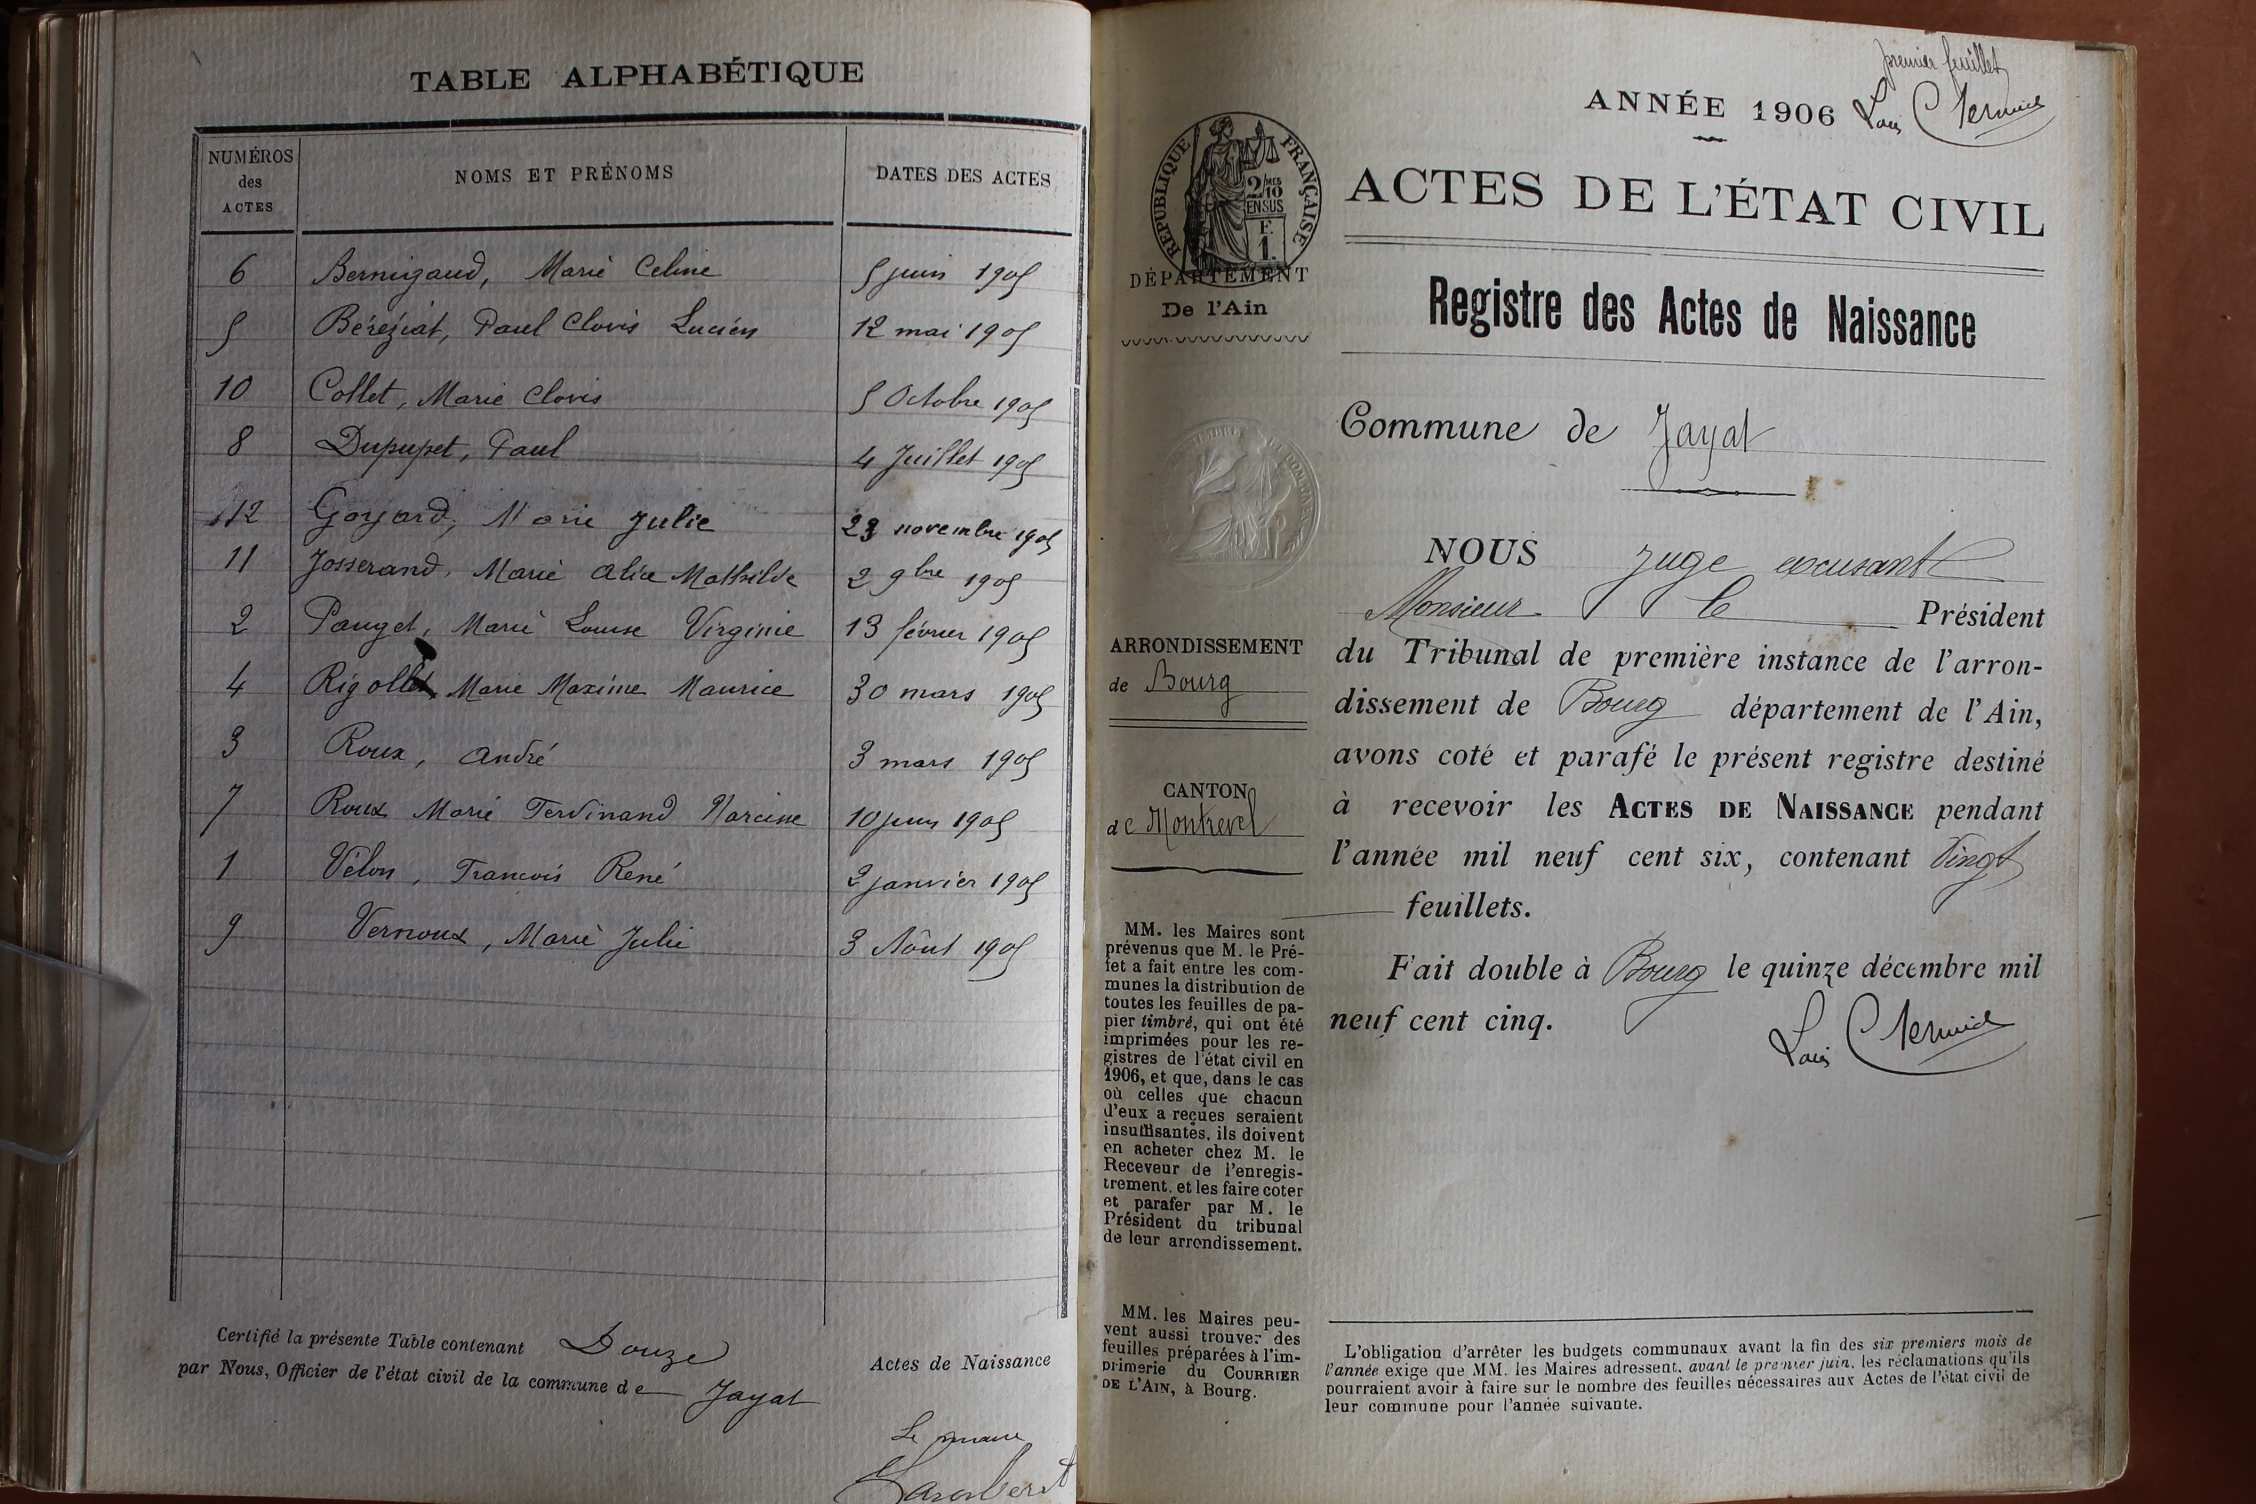 TABLE ALPHABÉTIQUE
NUMÉROS
des
ACTES
NOMS ET PRÉNOMS
DATES DES ACTES
6 Bernigaud, Marie Celine 5 juin 1905
5 Béréziat, Paul Clovis Lucien 12 mai 1905
10 Collet, Marie Clovis 5 Octobre 1905
8 Dupupet, Paul 4 Juillet 1905
12 Goyard, Marie Julie 23 novembre 1905
11 Josserand, Marie Alice Mathilde 2 9bre 1905
2 Pauget, Marie Louise Virginie 13 février 1905
4 Rigollet Marie Maxime Maurice 30 mars 1905
3 Roux, André 3 mars 1905
7 Roux Marie Ferdinand Narcisse 10 juin 1905
1 Vélon, François René 2 janvier 1905
9 Vernoux, Marie Julie 3 Aôut 1905
Certifié la présente Table contenant Douze Actes de Naissance
par Nous, Officier de l'état civil de la commune de Jayat
Le maire
premier feuillet
ANNÉE 1906 Louis
RÉPUBLIQUE FRANÇAISE
2/10
EN SUS
F.
1.
ACTES DE L'ÉTAT CIVIL
DÉPARTEMENT
De l'Ain
Registre des Actes de Naissance
Commune de Jayat
NOUS Juge excusant
Monsieur le Président
du Tribunal de première instance de l'arron-
dissement de Bourg département de l'Ain,
avons coté et parafé le présent registre destiné
à recevoir les ACTES DE NAISSANCE pendant
l'année mil neuf cent six, contenant Vingt
feuillets.
Fait double à Bourg le quinze décembre mil
neuf cent cinq.
Louis
ARRONDISSEMENT
de Bourg
CANTON
de Montrevel
MM. les Maires sont
prévenus que M. le Pré-
fet a fait entre les com-
munes la distribution de
toutes les feuilles de pa-
pier timbré, qui ont été
imprimées pour les re-
gistres de l'état civil en
1906, et que, dans le cas
où celles que chacun
d'eux a reçues seraient
insuffisantes, ils doivent
en acheter chez M. le
Receveur de l'enregis-
trement, et les faire coter
et parafer par M. le
Président du tribunal
de leur arrondissement.
MM. les Maires peu-
vent aussi trouver des
feuilles préparées à l'im-
primerie du COURRIER
DE L'AIN, à Bourg.
L'obligation d'arrêter les budgets communaux avant la fin des six premiers mois de
l'année exige que MM. les Maires adressent, avant le premier juin, les réclamations qu'ils
pourraient avoir à faire sur le nombre des feuilles nécessaires aux Actes de l'état civil de
leur commune pour l'année suivante.